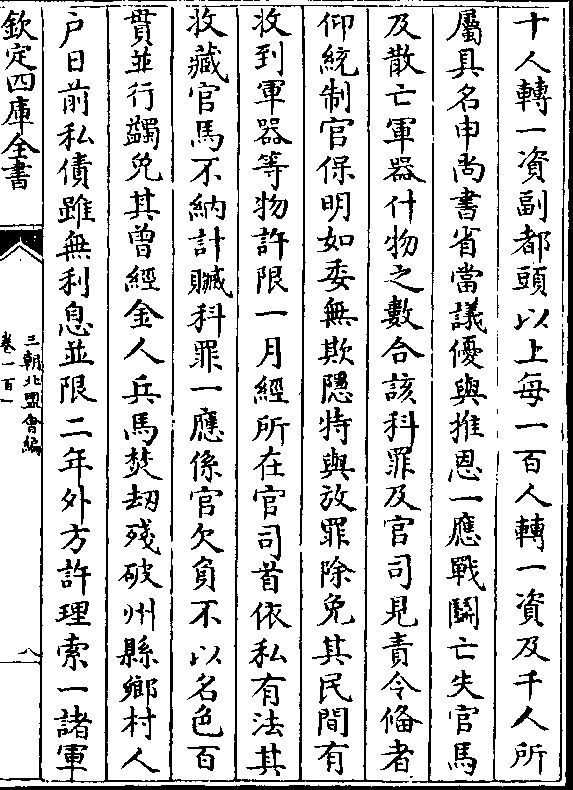 十人轉一資副都頭以上每一百人轉一資及千人所
屬具名申尚書省當議優與推恩一應戰鬬亡失官馬
及散亡軍器什物之數合該科罪及官司見責令俻者
仰統制官保明如委無欺隱特與放罪除免其民間有
收到軍器等物許限一月經所在官司首依私有法其
收藏官馬不納計贓科罪一應係官欠負不以名色百
貫並行蠲免其曾經金人兵馬焚刼殘破州縣鄉村人
户日前私債雖無利息並限二年外方許理索一諸軍
欽定四庫全書
三朝北盟會編
卷一百一
八